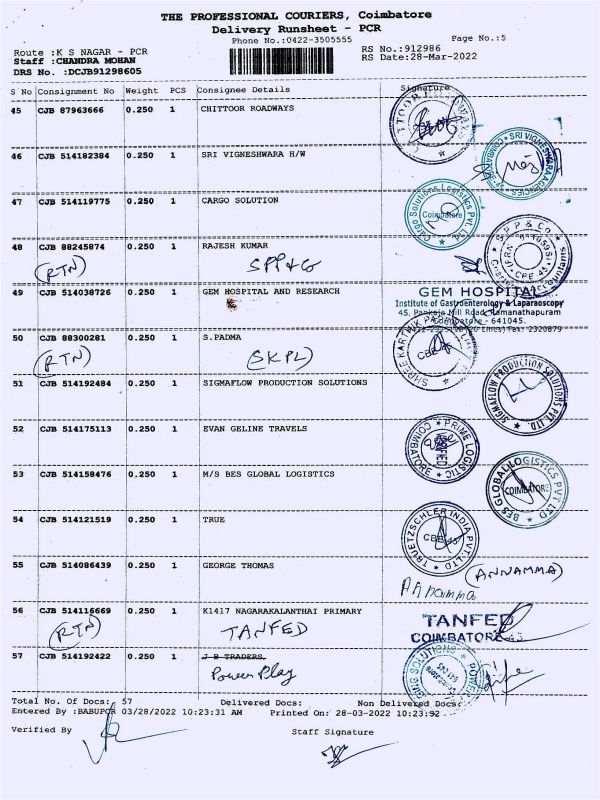 THE PROFESSIONAL COURIERS, Coimbatore
Delivery Runsheet - PCR
Phone No.:0422-3505555
Page No.:5
Route :K S NAGAR - PCR
RS No.:912986
Staff :CHANDRA MOHAN
RS Date:28-Mar-2022
DRS No. :DCJB91298605
S No Consignment No Weight PCS Consignee Details Signature
45 CJB 87963666 0.250 1 CHITTOOR ROADWAYS
46 CJB 514182384 0.250 1 SRI VIGNESHWARA H/W
SRI VIGNESHWARA AGENCIES
47 CJB 514119775 0.250 1 CARGO SOLUTION
Cargo Solutions Logistics PVT. LTD.
Coimbatore
48 CJB 88245874 0.250 1 RAJESH KUMAR
(RTN) SPP & Co
SPP & CO.
49 CJB 514038726 0.250 1 GEM HOSPITAL AND RESEARCH
GEM HOSPITAL
Institute of Gastroenterology & Laparaoscopy
45, Pankaja Mill Road, Ramanathapuram
Coimbatore - 641045.
Fax: 2320879
50 CJB 88300281 0.250 1 S.PADMA
(RTN) (SKPL)
SHREE KARTHIK
51 CJB 514192484 0.250 1 SIGMAFLOW PRODUCTION SOLUTIONS
SIGMAFLOW PRODUCTION SOLUTIONS PVT. LTD.
52 CJB 514175113 0.250 1 EVAN GELINE TRAVELS
PRIME LOGISTIC
COIMBATORE
53 CJB 514158476 0.250 1 M/S BES GLOBAL LOGISTICS
BES GLOBAL LOGISTICS PVT LTD
COIMBATORE
54 CJB 514121519 0.250 1 TRUE
TRUETZSCHLER INDIA PVT. LTD
55 CJB 514086439 0.250 1 GEORGE THOMAS
(ANNAMMA)
Annamma
56 CJB 514116669 0.250 1 K1417 NAGARAKALANTHAI PRIMARY
(RTN) TANFED
TANFED
COIMBATORE-45
57 CJB 514192422 0.250 1 J B TRADERS
Power Play
Total No. Of Docs: 57 Delivered Docs: Non Delivered Docs:
Entered By :BABUPCR 03/28/2022 10:23:31 AM Printed On: 28-03-2022 10:23:92
Verified By Staff Signature